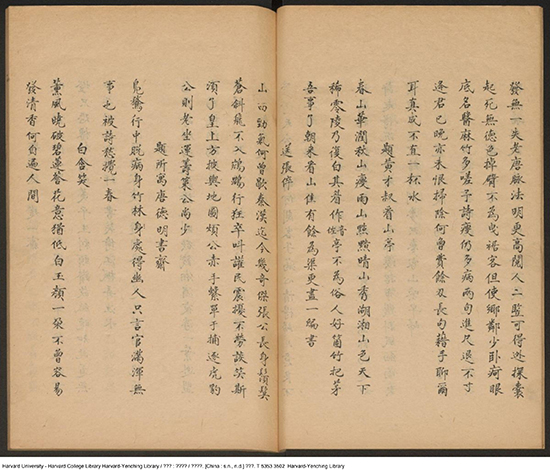 發無一失老唐脉法明更高閱人二豎可得逃探囊
起死無德色掉臂不爲曳裾客但使鄉鄰少卧疴眼
底名醫麻竹多嗟予詩瘦仍多病兩旬進尺退不寸
逢君已晚亦未恨掃除何啻餘刄長句藉手聊爾
耳真成不直一杯水
題黃才叔看山亭
春山華潤秋山瘦雨山點黯晴山秀湖湘山色天下
稀零陵乃復白其眉作亭不爲俗人好箇竹把茅
吾事了朝來看山佳有餘爲渠更盡一編書
送張倅
山西勁氣何曾歇秦漢迄今幾奇傑張公長身鬢髮
蒼斜飛不入行狂卒叫讙民震擾不勞談笑斯
須了皇上方披輿地圖煩公赤手繫單于捕逐虎豹
公則老坐運籌策公尚少
題所寓唐德明書齋
鳧鷖行中脫病身竹林身處得幽人只言官滿渾無
事也被詩愁攪一春
白含笑
薰風曉破碧蓮莟花意猶低白玉顏一粲不曾容易
發清香何自遍人間
Harvard University - Harvard College Library Harvard-Yenching Library / ??? : ???? / ????. [China : s.n., n.d.] ???. T 5353 3502  Harvard-Yenching Library